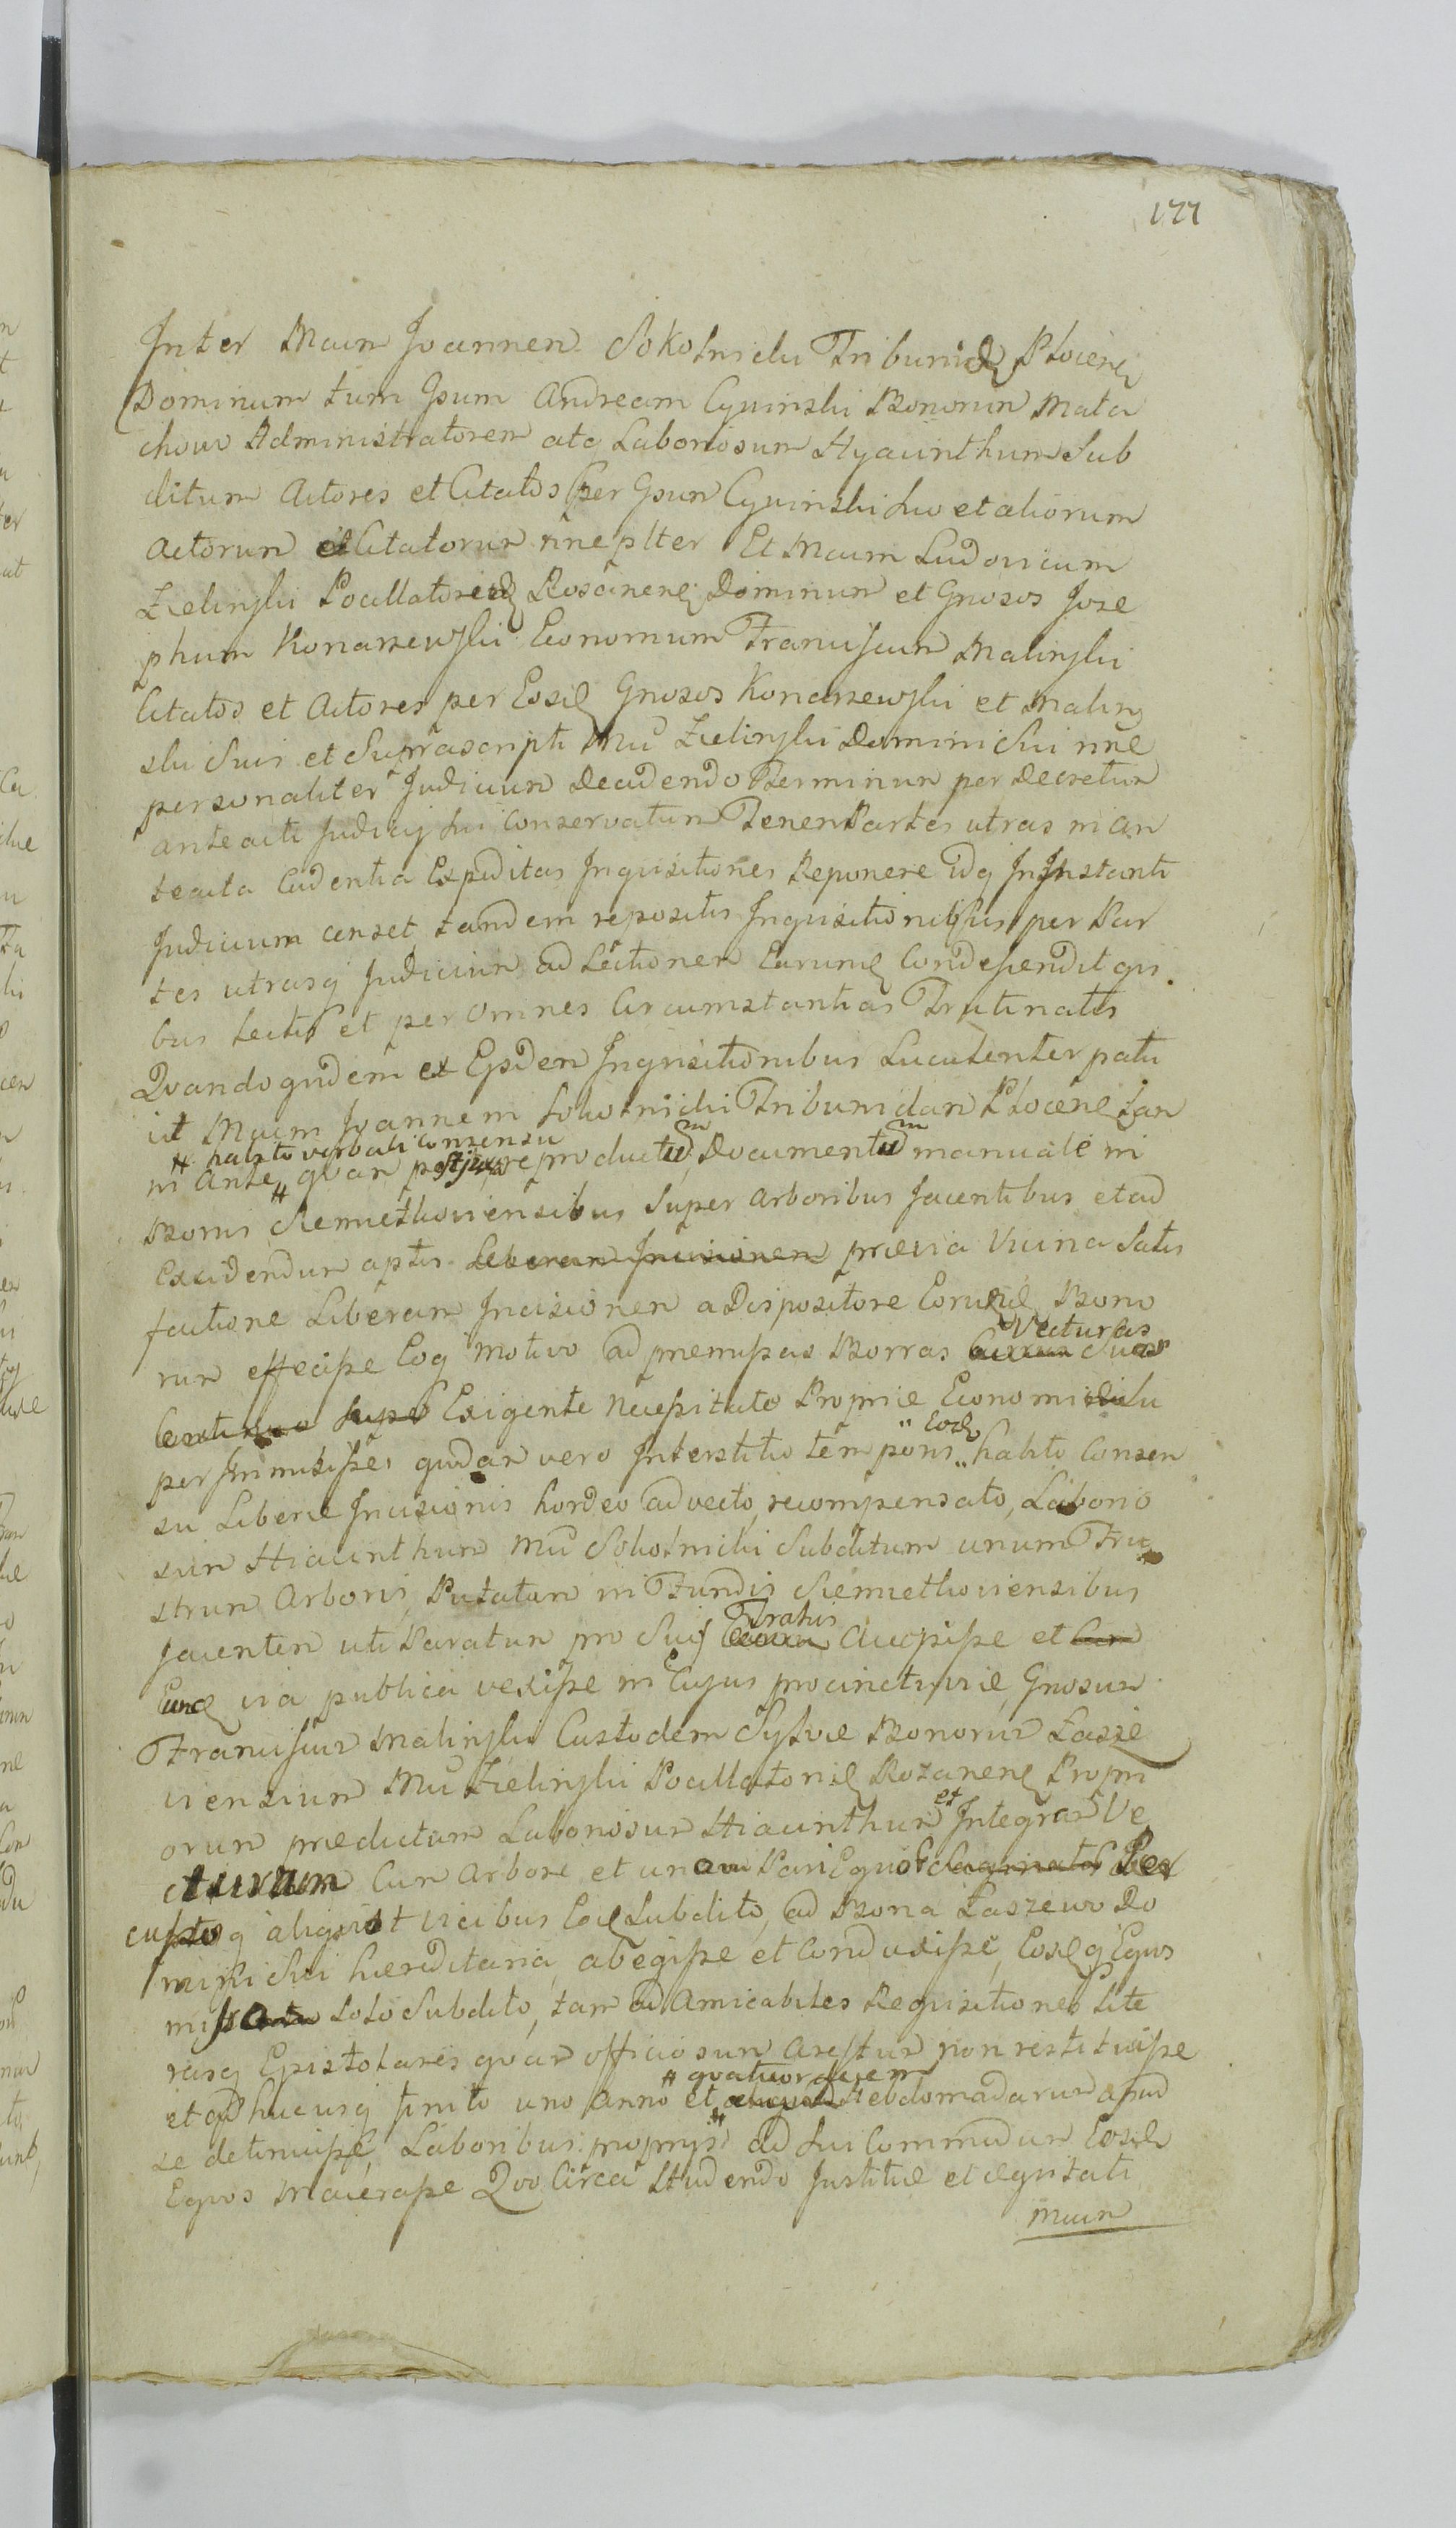 177
Inter Mcum Joannem Sokolnicki Tribunid Plocen
Dominum tum Gsum Andream Cywinski Bonorum Mala
chowo Administratorem atq Laboriosum Hyacinthum Sub
ditum Actores et Citatos per Gsum Cywinski suo et aliorum
Actorum et Citatorum nne plter Et Mcum Ludovicum
Zielinski Pocillatorid Rosanen Dominum et Gnosos Jose
phum Konarzewski Economum Franciscum Malinski
Citatos et Actores per Eosd Gnosos Konarzewski et Malin
ski Suis et Suprascripti Mci Zielinski Domini Sui nne
personaliter Judicium Decidendo Terminum per Decretum
anteacti Judicij sui Conservatum Tenen Partes utras in an
teacta Cadentia Expeditas Inquisitiones Reponere idq In Instanti
Judicium censet, tandem repositis Inquisitionibus per Par
tes utrasq Judicium ad Lectionem Earund Condescendit qui
bus Lectis et per Omnes Circumstantias Trutinatis
Quando quidem ex Eisdem Inquisitionibus Luculenter patu
it Mcum Joannem Sokolnicki Tribunidam Plocen tam
# habito verbali Consensu
in Ante # quam post reproductum Documentum manuale in
Bonis Siemiethoviensibus Super Arboribus Jacentibus et ad
Excidendum aptis Liberam Incisionem prævia Vicina Satis
factione Liberam Incisionem a Dispositore Eorund Bono
rum effecisse Eoq motivo ad præmissas Borras Vecturas Suas
Exigente Necessitate Propriæ Economiæ
per Immisisse, quodam vero Interstitio temporis Eod habito Consen
su Liberæ Incisionis hordeo advecto, recompensato, Laborio
sum Hiacinthum Mci Sokolnicki Subditum unum Fru
strum Arboris Putatum in Fundis Siemiethoviensibus
Jacentem uti Paratum pro Suis Trahis Accepisse et Cum
Eund via publica vexisse in Cujus procinctu viæ, Gnosum
Franciscum Malinski Custodem Sylvæ Bonorum Lasze
viensium Mci Zielinski Pocillatorid Rozanen Propri
orum prædictum Laboriosum Hiacinthum et Integram Ve
cturam Cum Arbore et una Pari Equor Saginator Per
cussoq aliquot vicibus Eod Subdito, ad Bona Laszewo Do
mini Sui hæreditaria, abegisse et Conduxisse, Eosdq Equos
misso Solo Subdito, tam ad Amicabiles Requisitiones Lite
rasq Epistolares quam officiosum Arestum non restituisse
et qd hucusq finito uno Anno et # quatuordecem Hebdomadarum apud
se detinuisse, Laboribus proprijs ad sui Commodum Eosd
Equos Macerasse Quo Circa Studendo Justitiæ et æquitati
Mcum